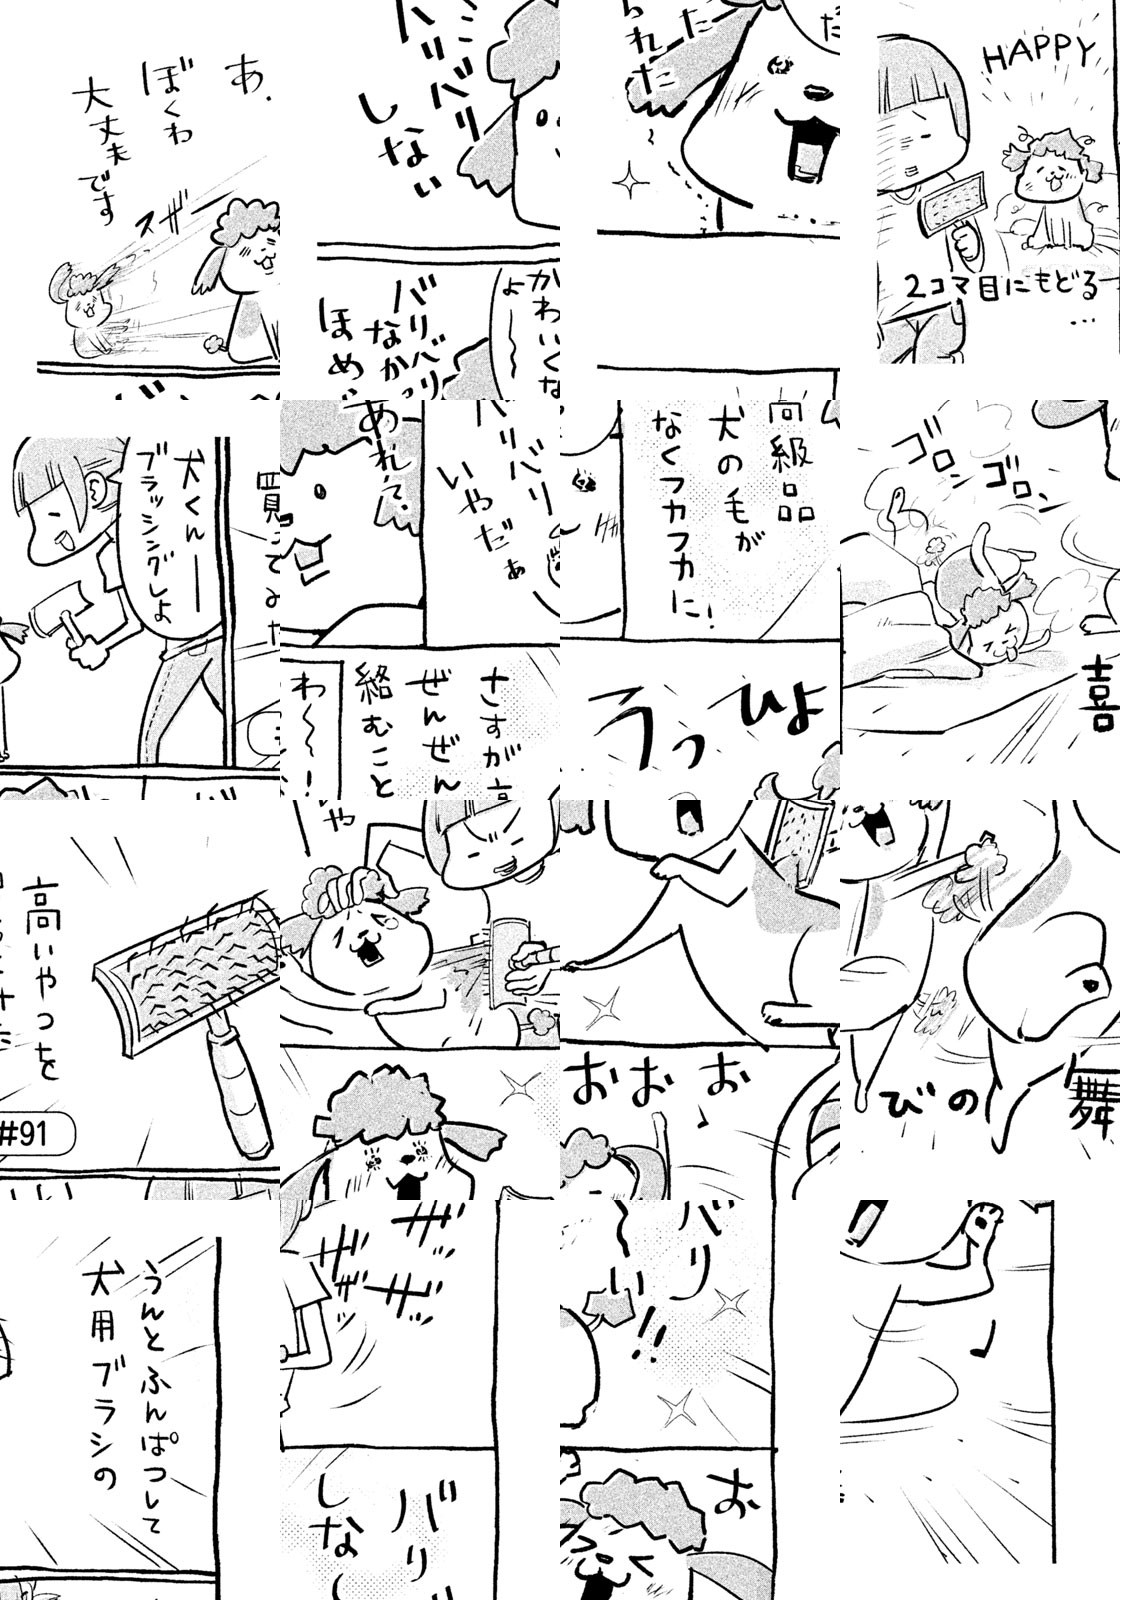 HAPPY
2コマ目にもどる
…
られた
バリバリ
しない
かわいくな
よ〜〜
バリバリ
なかっ
ほめ
あ.
ぼくわ
大丈夫です
ズザ
ゴロン
ゴロン
喜
犬の毛が
なくフカフカに!
うっひょ
バリバリ
いやだぁ
あれ?
さすが
ぜんぜん
絡むこと
わ〜!
犬くんー
ブラッシングしよ
高いやつを
#91
おおお
びの
舞
うんとふんぱつして
犬用ブラシの
ザザザザッ
バリ
しな
バリ
い!!
お